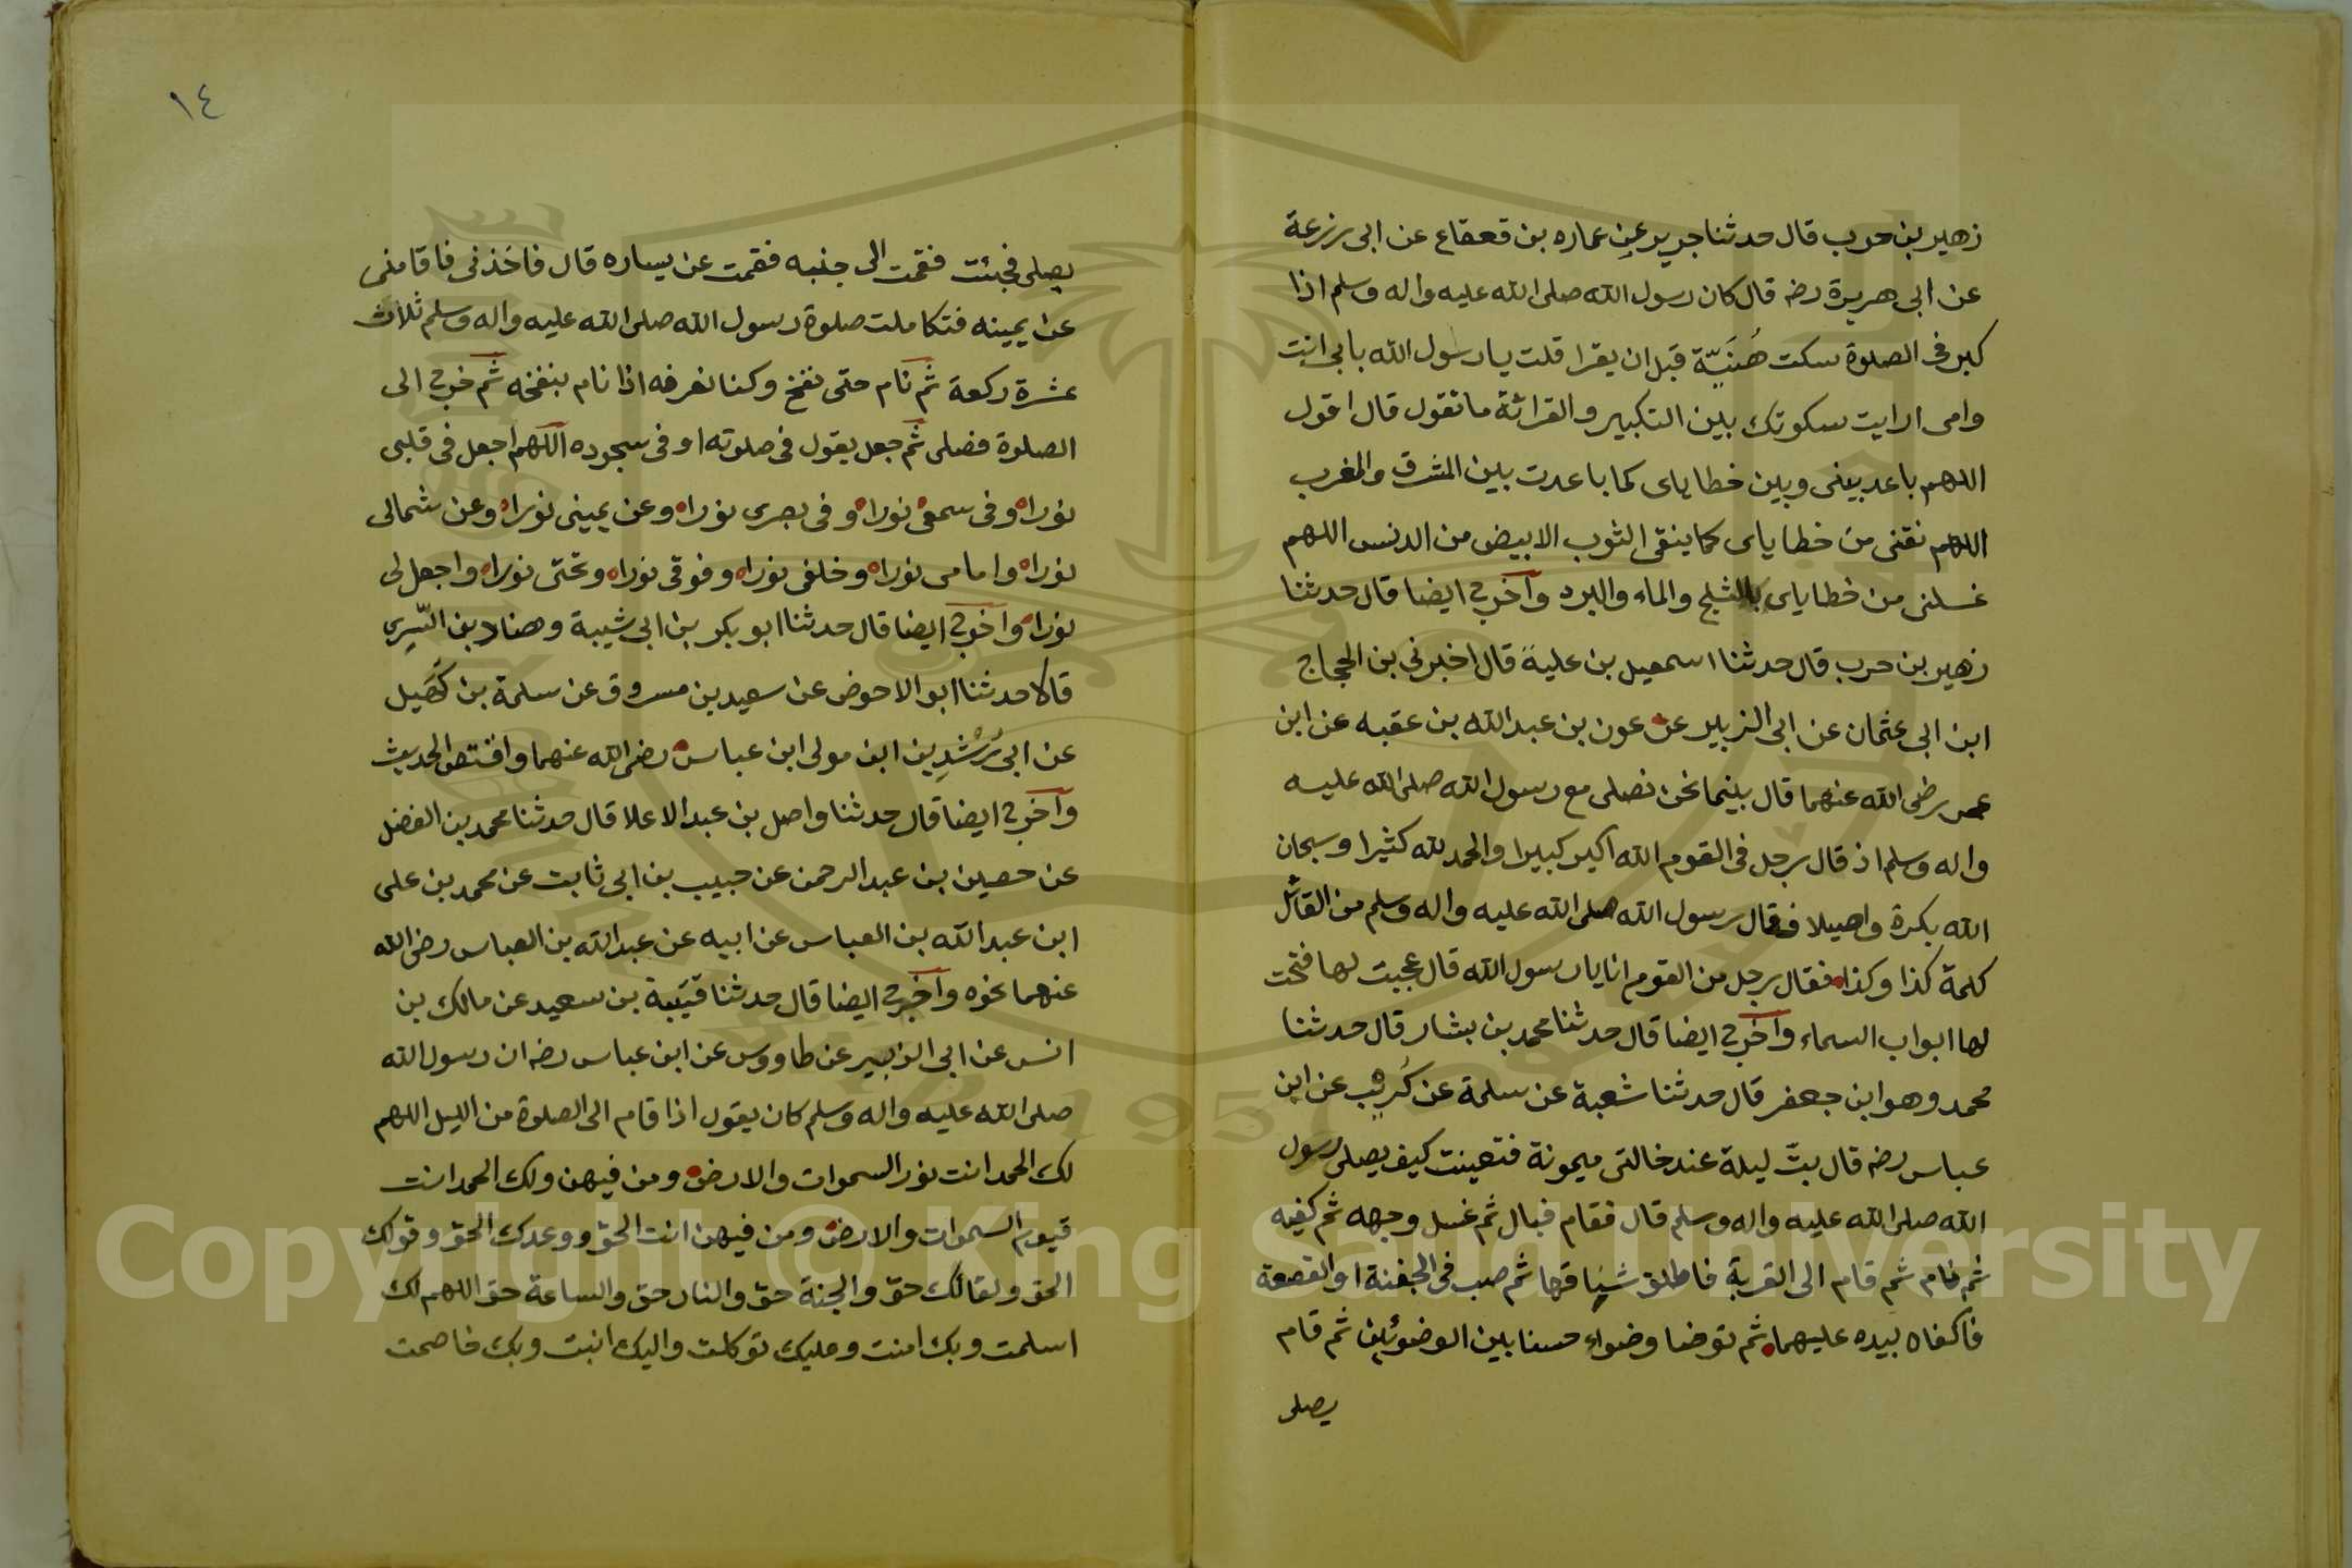 زهير بن حرب قال حدثنا جرير عن عماره بن قعقاع عن ابى زرعة
عن ابى هريرة رضه قال كان رسول الله صلى الله عليه واله وسلم اذا
كبر فى الصلوة سكت هُنَيّة قبل ان يقرا قلت يا رسول الله بابى انت
وامى ارايت سكوتك بين التكبير والقرائة ما تقول قال اقول
اللهم باعد بينى وبين خطاياى كما باعدت بين المشرق والمغرب
اللهم نقنى من خطاياى كما ينقى الثوب الابيض من الدنس اللهم
غسلنى من خطاياى بالثلج والماء والبرد وآخرج ايضا قال حدثنا
زهير بن حرب قال حدثنا اسمعيل بن علية قال اخبرنى بن الحجاج
ابن ابى عثمان عن ابى الزبير عن عون بن عبد الله بن عقبه عن ابن
عمر رضى الله عنهما قال بينما نحن نصلى مع رسول الله صلى الله عليه
واله وسلم اذ قال رجل فى القوم الله اكبر كبيرا والحمد لله كثيرا وسبحان
الله بكرة واصيلا فقال رسول الله صلى الله عليه واله وسلم من القائل
كلمة كذا وكذا فقال رجل من القوم انا يا رسول الله قال عجبت لها فتحت
لها ابواب السماء وآخرج ايضا قال حدثنا محمد بن بشار قال حدثنا
محمد وهو ابن جعفر قال حدثنا شعبة عن سلمة عن كُريب عن ابن
عباس رضه قال بتّ ليلة عند خالتى ميمونة فتعينت كيف يصلى رسول
الله صلى الله عليه واله وسلم قال فقام فبال ثم غسل وجهه ثم كفيه
ثم نام ثم قام الى القربة فاطلق شناقها ثم صب فى الجفنة او القصعة
فاكفاه بيده عليهما ثم توضا وضواء حسنا بين الوضوئين ثم قام
يصلى
١٤
يصلى فجئت فقمت الى جنبه فقمت عن يساره قال فاخذنى فاقامنى
عن يمينه فتكاملت صلوة رسول الله صلى الله عليه واله وسلم ثلاث
عشرة ركعة ثم نام حتى نفخ وكنا نعرفه اذا نام بنفخه ثم خرج الى
الصلوة فصلى ثم جعل يقول فى صلوته او فى سجوده اللهم اجعل فى قلبى
نورا وفى سمعى نورا وفى بصرى نورا وعن يمينى نورا وعن شمالى
نورا وامامى نورا وخلفى نورا وفوقى نورا وتحتى نورا واجعل لى
نورا وآخرج ايضا قال حدثنا ابو بكر بن ابى شيبة وهناد بن السّرى
قالا حدثنا ابو الاحوض عن سعيد بن مسروق عن سلمة بن كُهَيل
عن ابى رُشْدِين ابن مولى ابن عباس رضى الله عنهما واقتص الحديث
وآخرج ايضا قال حدثنا واصل بن عبد الاعلا قال حدثنا محمد بن الفضل
عن حصين بن عبد الرحمن عن حبيب بن ابى ثابت عن محمد بن على
ابن عبد الله بن العباس عن ابيه عن عبد الله بن العباس رضى الله
عنهما نحوه وآخرج ايضا قال حدثنا قتيبة بن سعيد عن مالك بن
انس عن ابى الزبير عن طاووس عن ابن عباس رضه ان رسول الله
صلى الله عليه واله وسلم كان يقول اذا قام الى الصلوة من الليل اللهم
لك الحمد انت نور السموات والارض ومن فيهن ولك الحمد انت
قيوم السموات والارض ومن فيهن انت الحق ووعدك الحق وقولك
الحق ولقائك حق والجنة حق والنار حق والساعة حق اللهم لك
اسلمت وبك امنت وعليك توكلت واليك انبت وبك خاصمت
Copyright © King Saud University